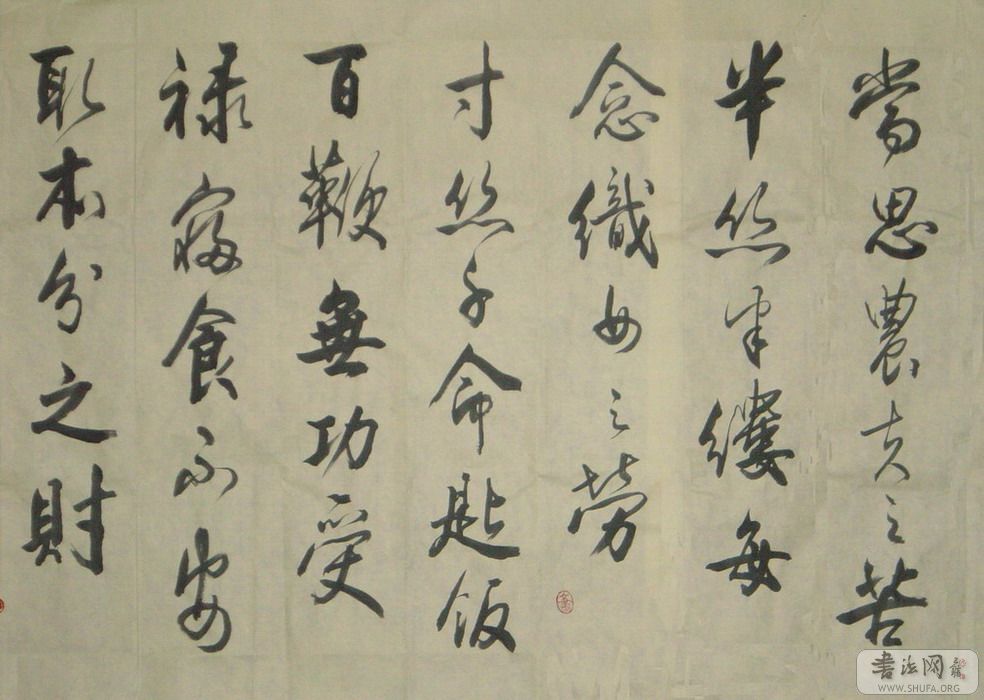 當思農夫之苦
半丝半縷每
念織女之勞
寸丝千命匙飯
百鞭無功受
禄寢食不安
取本分之財
書法网
WWW.SHUFA.ORG